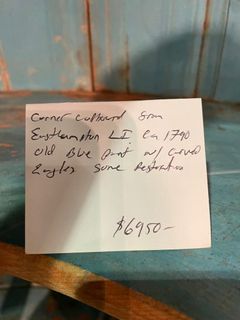 Corner Cupboard from
Easthampton LI Ca 1790
Old Blue Paint w/ Carved
Eagles Some Restoration
$6950-